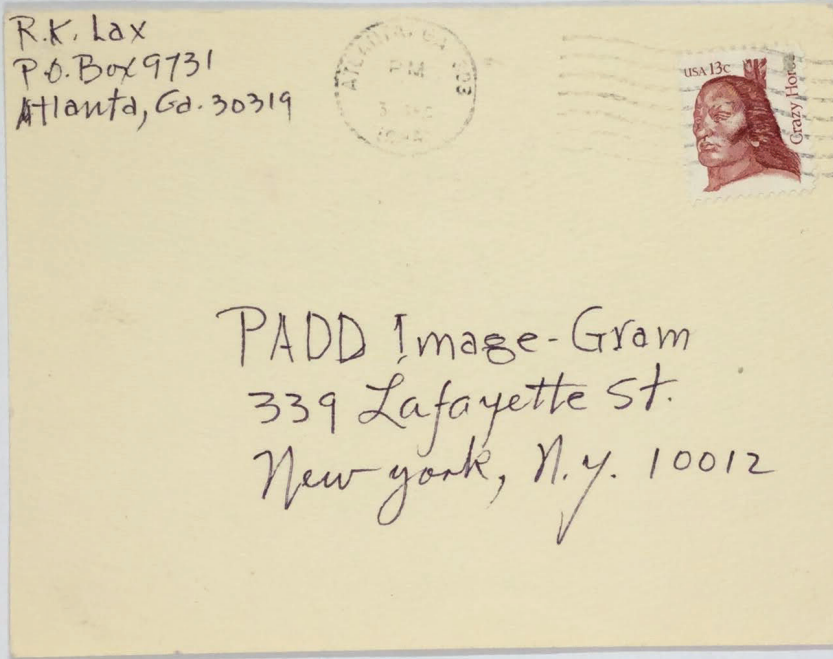 R.K. Lax
P.O. Box 9731
Atlanta, Ga. 30319
ATLANTA, GA 303
PM
USA 13c
Crazy Horse
PADD Image-Gram
339 Lafayette St.
New York, N.Y. 10012